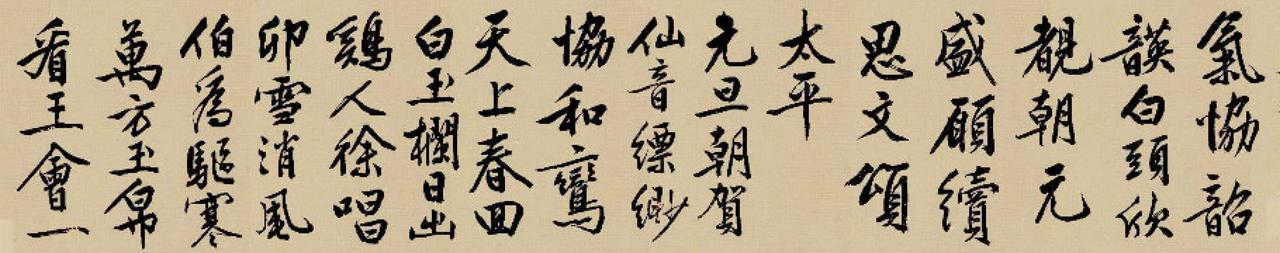 氣協韶
韺白頭欣
覩朝元
盛願續
思文頌
太平
元旦朝賀
仙音縹緲
協和鸞
天上春回
白玉欄日出
鷄人徐唱
卯雪消風
伯爲驅寒
萬方玉帛
看王會一